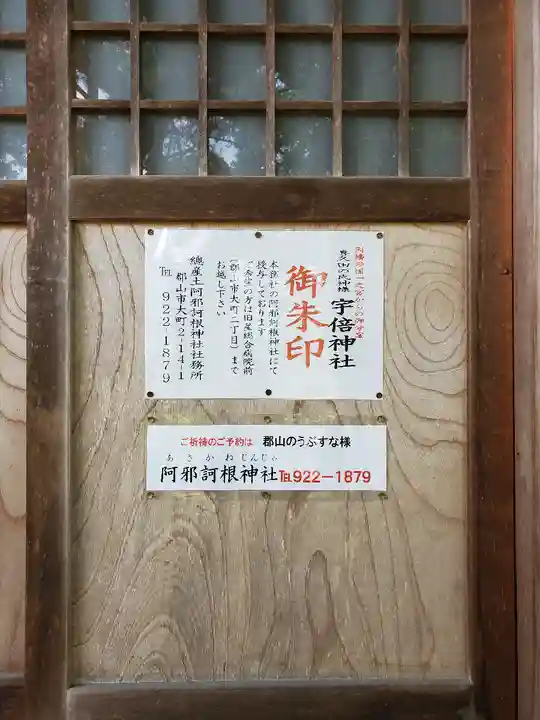 因幡の国一之宮からの御分霊
宇倍神社
御朱印
本務社の阿邪訶根神社にて
授与しております
ご希望の方は旧星総合病院前
(郡山市大町二丁目)まで
お越し下さい
總産土阿邪訶根神社社務所
郡山市大町2-14-1
TEL 922-1879
ご祈祷のご予約は 郡山のうぶすな様
あさかねじんじゃ
阿邪訶根神社TEL922-1879